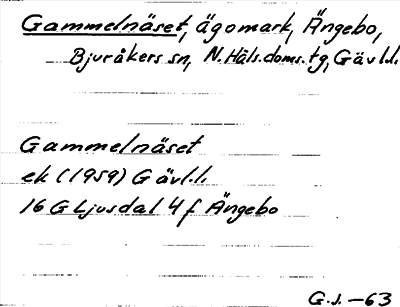 Gammelnäset, ägomark, Ängebo,
Bjuråkers sn, N. Häls. doms. tg, Gävl.l.
Gammelnäset
ek (1959) Gävl.l.
16 G Ljusdal 4 f Ängebo
G.J. -63